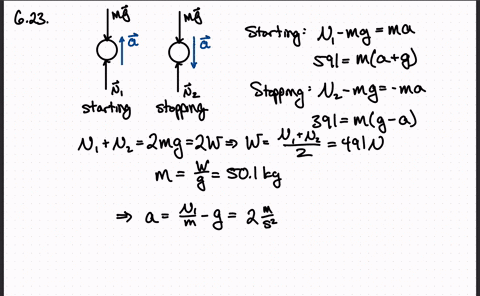 6.23.
mg⃗
a⃗
N⃗₁
starting
mg⃗
a⃗
N⃗₂
stopping
Starting: N₁-mg = ma
591 = m(a+g)
Stopping: N₂-mg = -ma
391 = m(g-a)
N₁+N₂ = 2mg = 2W ⇒ W = (N₁+N₂)/2 = 491 N
m = W/g = 50.1 kg
⇒ a = N₁/m - g = 2 m/s²